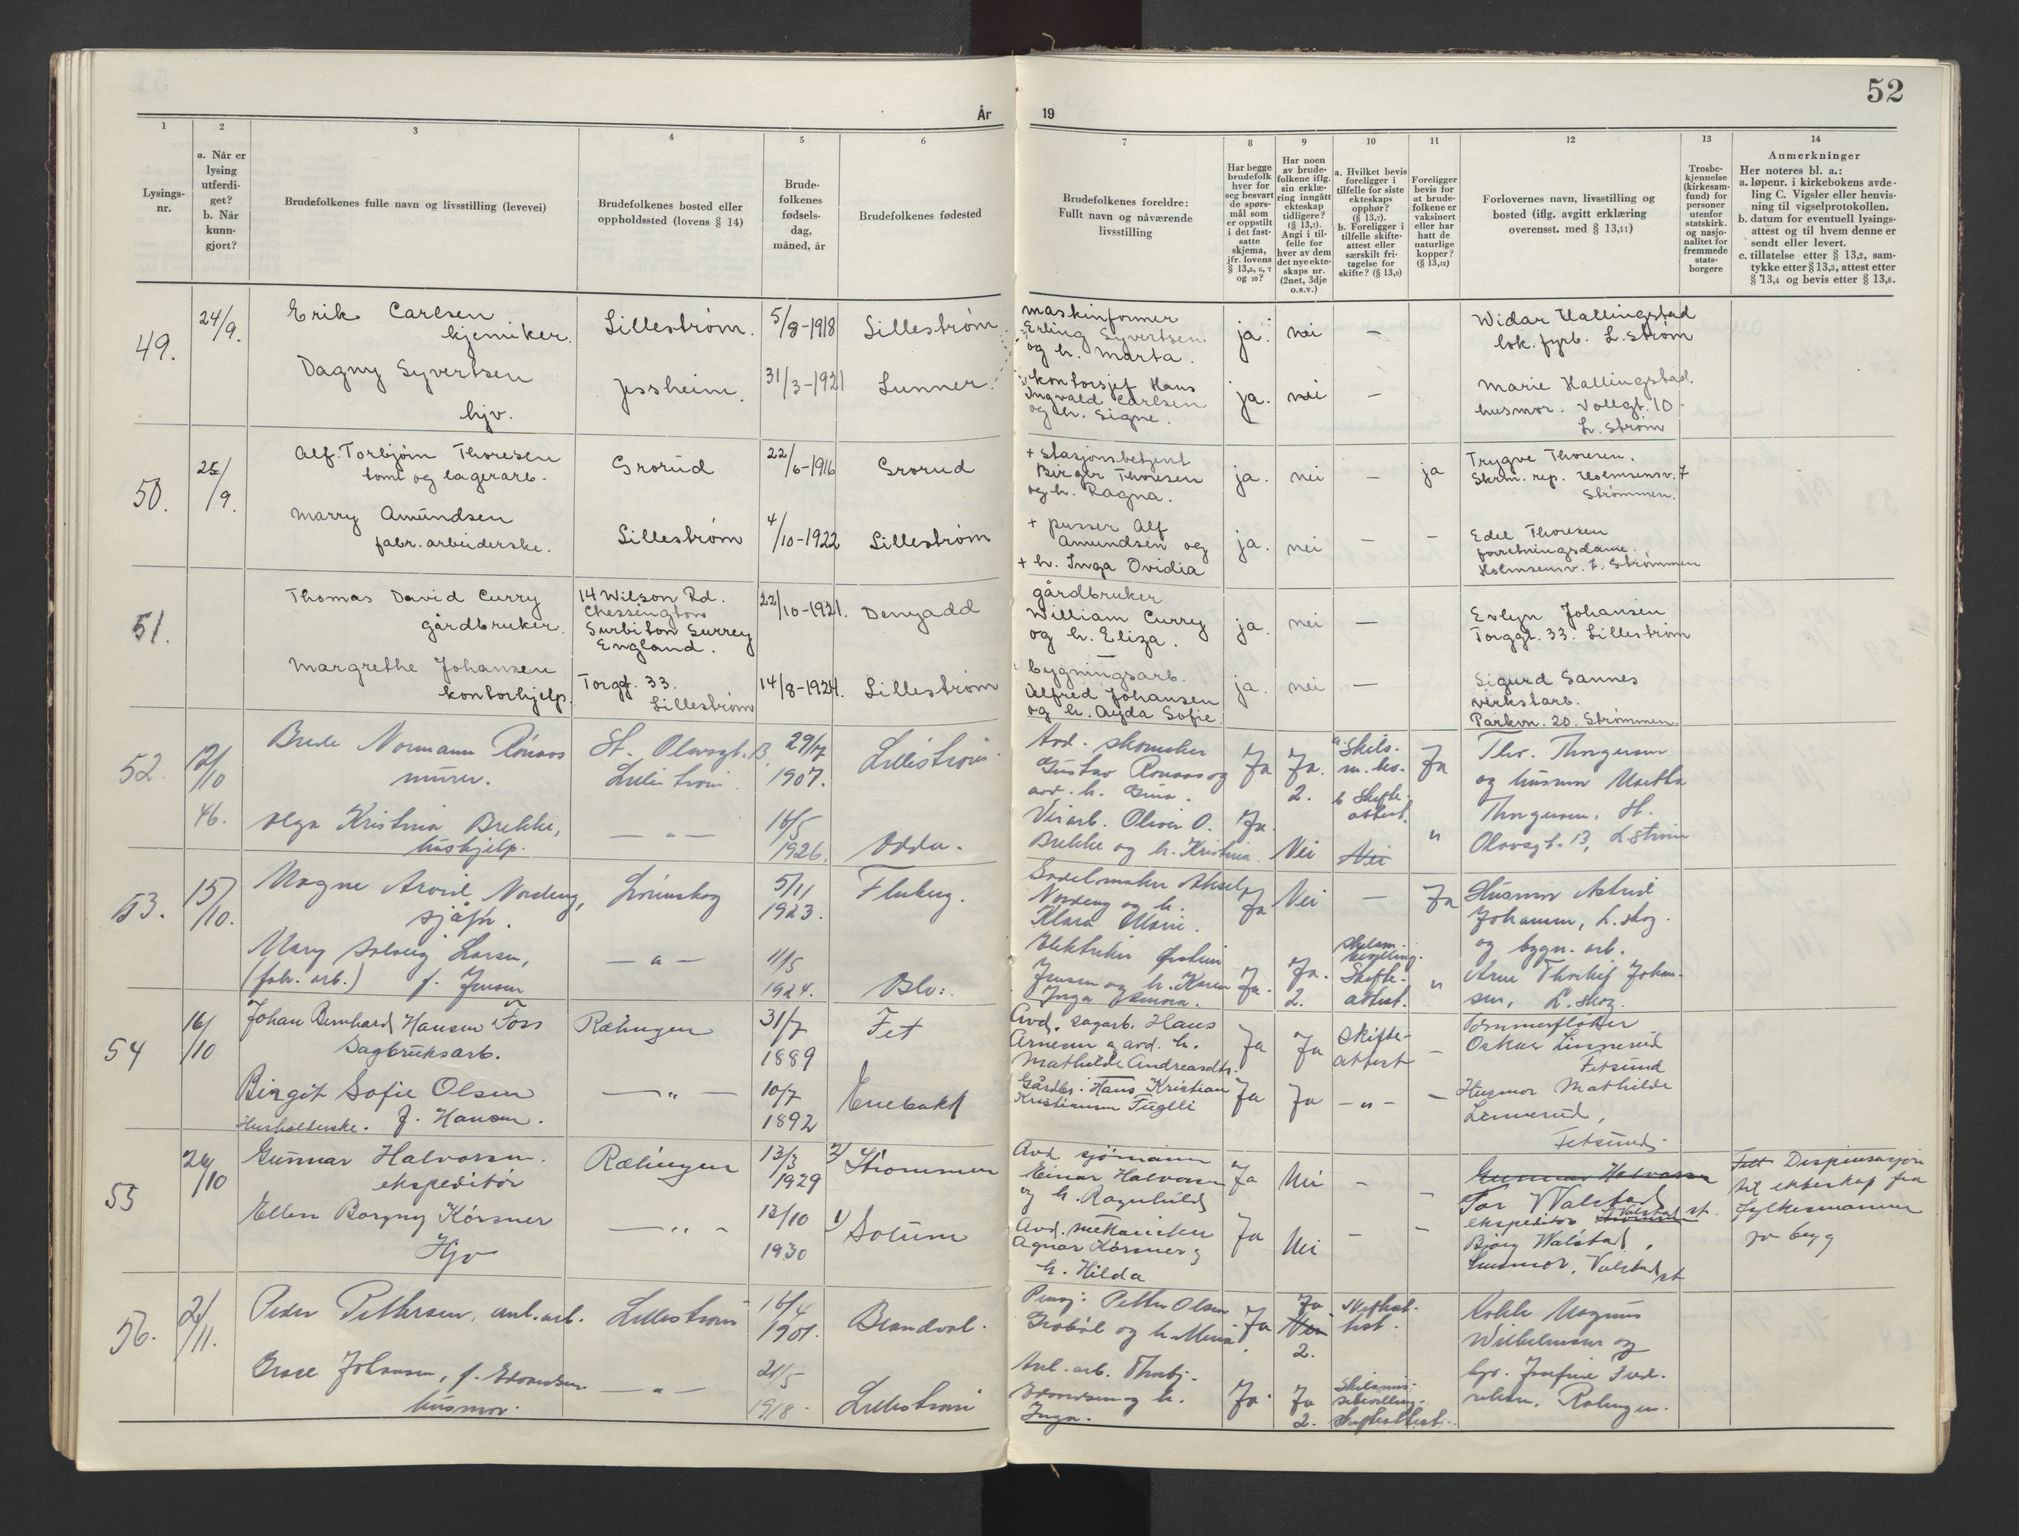 52
År
19
1
2
3
4
5
6
7
8
9
10
11
12
13
14
Lysings-
nr.
a. Når er
lysing
utferdi-
get?
b. Når
kunn-
gjort?
Brudefolkenes fulle navn og livsstilling (levevei)
Brudefolkenes bosted eller
oppholdssted (lovens § 14)
Brude-
folkenes
fødsels-
dag,
måned, år
Brudefolkenes fødested
Brudefolkenes foreldre:
Fullt navn og nåværende
livsstilling
Har begge
brudefolk
hver for
seg besvart
de spørs-
mål som
er oppstilt
i det fast-
satte
skjema,
jfr. lovens
§ 13,5, 6, 7
og 10?
Har noen
av brude-
folkene iflg.
sin erklæ-
ring inngått
ekteskap
tidligere?
(§ 13,7).
Angi i til-
felle for
hver av dem
det nye ekte-
skaps nr.
(2net, 3dje
o.s.v.)
a. Hvilket bevis
foreligger i
tilfelle for siste
ekteskaps
opphør?
(§ 13,7).
b. Foreligger i
tilfelle skifte-
attest eller
særskilt fri-
tagelse for
skifte? (§ 13,9)
Foreligger
bevis for
at brude-
folkene er
vaksinert
eller har
hatt de
naturlige
kopper?
(§ 13,12)
Forlovernes navn, livsstilling og
bosted (iflg. avgitt erklæring
overensst. med § 13,11)
Trosbe-
kjennelse
(kirkesam-
fund) for
personer
utenfor
statskirk.
og nasjo-
nalitet for
fremmede
stats-
borgere
Anmerkninger
Her noteres bl. a.:
a. løpenr. i kirkebokens avde-
ling C. Vigsler eller henvis-
ning til vigselprotokollen.
b. datum for eventuell lysings-
attest og til hvem denne er
sendt eller levert.
c. tillatelse etter § 13,2, sam-
tykke etter § 13,3, attest etter
§ 13,4 og bevis etter § 13,8.
49.
24/9.
Erik Carlsen
kjemiker.
Lillestrøm.
5/8-1918
Lillestrøm.
maskinformer
Erling Syvertsen
og h. Marta.
ja.
nei
—
Widar Hallingstad
lok. fyrb. L. Strøm
Dagny Syvertsen
hjv.
Jessheim.
31/3-1921
Lunner.
kontorsjef Hans
Ingvald Carlsen
og h. Signe.
ja.
nei
—
Marie Hallingstad.
husmor. Vollgt. 10
L. Strøm
50.
25/9.
Alf. Torbjørn Thoresen
tomt og lagerarb.
Grorud
22/6-1916
Grorud
+ stasjonsbetjent
Birger Thoresen
og h. Ragna.
ja.
nei
—
ja
Trygve Thoresen.
Skrm. rep. Holmsensv. 7
Strømmen.
Marry Amundsen
fabr. arbeiderske.
Lillestrøm
4/10-1922
Lillestrøm
+ pusser Alf
Amundsen og
+ h. Inga Ovidia
ja.
nei
—
—
Edel Thoresen
forretningsdame.
Holmsensv. 7. Strømmen
51.
Thomas David Curry
gårdbruker.
14 Wilson Rd.
Chessington
Surbiton Surrey
England.
22/10-1921.
Denyadd
gårdbruker
William Curry
og h. Eliza.
ja.
nei
—
Evlyn Johansen
Torggt. 33. Lillestrøm
Margrethe Johansen
kontorhjelp.
Torggt. 33.
Lillestrøm
14/8-1924.
Lillestrøm
bygningsarb.
Alfred Johansen
og h. Ayda Sofie.
ja.
nei
—
Sigurd Sannes
verkstarb.
Parkvn. 20. Strømmen.
52.
12/10
Brede Normann Rønaas
murer.
St. Olavsgt. 13,
Lillestrøm.
29/12
1907.
Lillestrøm.
Avd. skomaker
Gustav Rønaas og
avd. h. Gina.
Ja
Ja.
2.
a. Skils-
m. bev.
b Skifte-
attest.
Ja
Thv. Thorgersen
og husmor Martha
Thorgersen, St.
Olavsgt. 13, L. Strøm
46.
Olga Kristina Brekke,
hushjelp.
— " —
16/5
1926.
Odda.
Verarb. Oliver O.
Brekke og h. Kristina.
Ja.
Nei
Nei
"
53.
15/10.
Magne Arvid Nordeng,
sjåfør.
Lørenskog
5/11
1923.
Fluberg.
Sadelmaker Aksel
Nordeng og h.
Klara Marie.
Ja
Nei
—
Ja
Husmor Astrid
Johansen, L. skog.
og bygn. arb.
Arne Thorleif Johan-
sen, L. skog.
Mary Solveig Larsen,
(fabr. arb.) f. Jensen
— " —
11/5
1924.
Elektriker Øistein
Jensen og h. Karen
Inga
Ja.
Ja.
2.
Skifte-
attest.
"
54
16/10
Johan Bernhard Hansen Foss
Sagbruksarb.
Rælingen
31/7
1889
Fet
Avd. sagarb. Hans
Arnesen og avd. h.
Mathilde Andreasdtr.
Ja
Ja
Skifte-
attest
—
Tømmerfløter
Oskar Linnerud
Fetsund
Birgit Sofie Olsen
Husholderske. f. Hansen.
— " —
10/7
1892
Enebakk
Gårdbr. Hans Kristian
Kristiansen Tuglli
Ja
Ja
— " —
—
Husmor Mathilde
Linnerud,
Fetsund.
55
26/10
Gunnar Halvorsen.
ekspeditør
Rælingen
13/3
1929
2) Strømmen
Avd. sjømann
Einar Halvorsen
og h. Ragnhild
Ja
Nei
—
—
Gunnar Halvorsen
Tor Walstad
ekspeditør Strømmen Valstad st.
Bjørg Walstad,
husmor, Valstad st
Fett Dispensasjon
til ekteskap fra
fylkesmannen
Ellen Borgny Kørsner
Hjv
— " —
13/10
1930
1) Sørum
Avd. mekaniker
Agnar Kørsner og
h. Hilda
Ja
Nei
—
—
56.
2/11.
Peder Pettersen, anl. arb.
Lillestrøm
16/4
1901.
Brandval.
Pensj. Petter Olsen
og h. Maria.
Ja
Ja
Nei
2.
Kokk Magnus
Wilhelmsen og
hjv. Josefine Fred-
riksen, Rælingen.
Grace Johansen, f. Edvardsen
husmor.
— " —
21/5
1918.
Lillestrøm
Anl. arb. Thorbj.
Edvardsen og h.
Inga.
Ja.
Ja
2.
Skilsmis-
sebevilling.
Skifteattest.